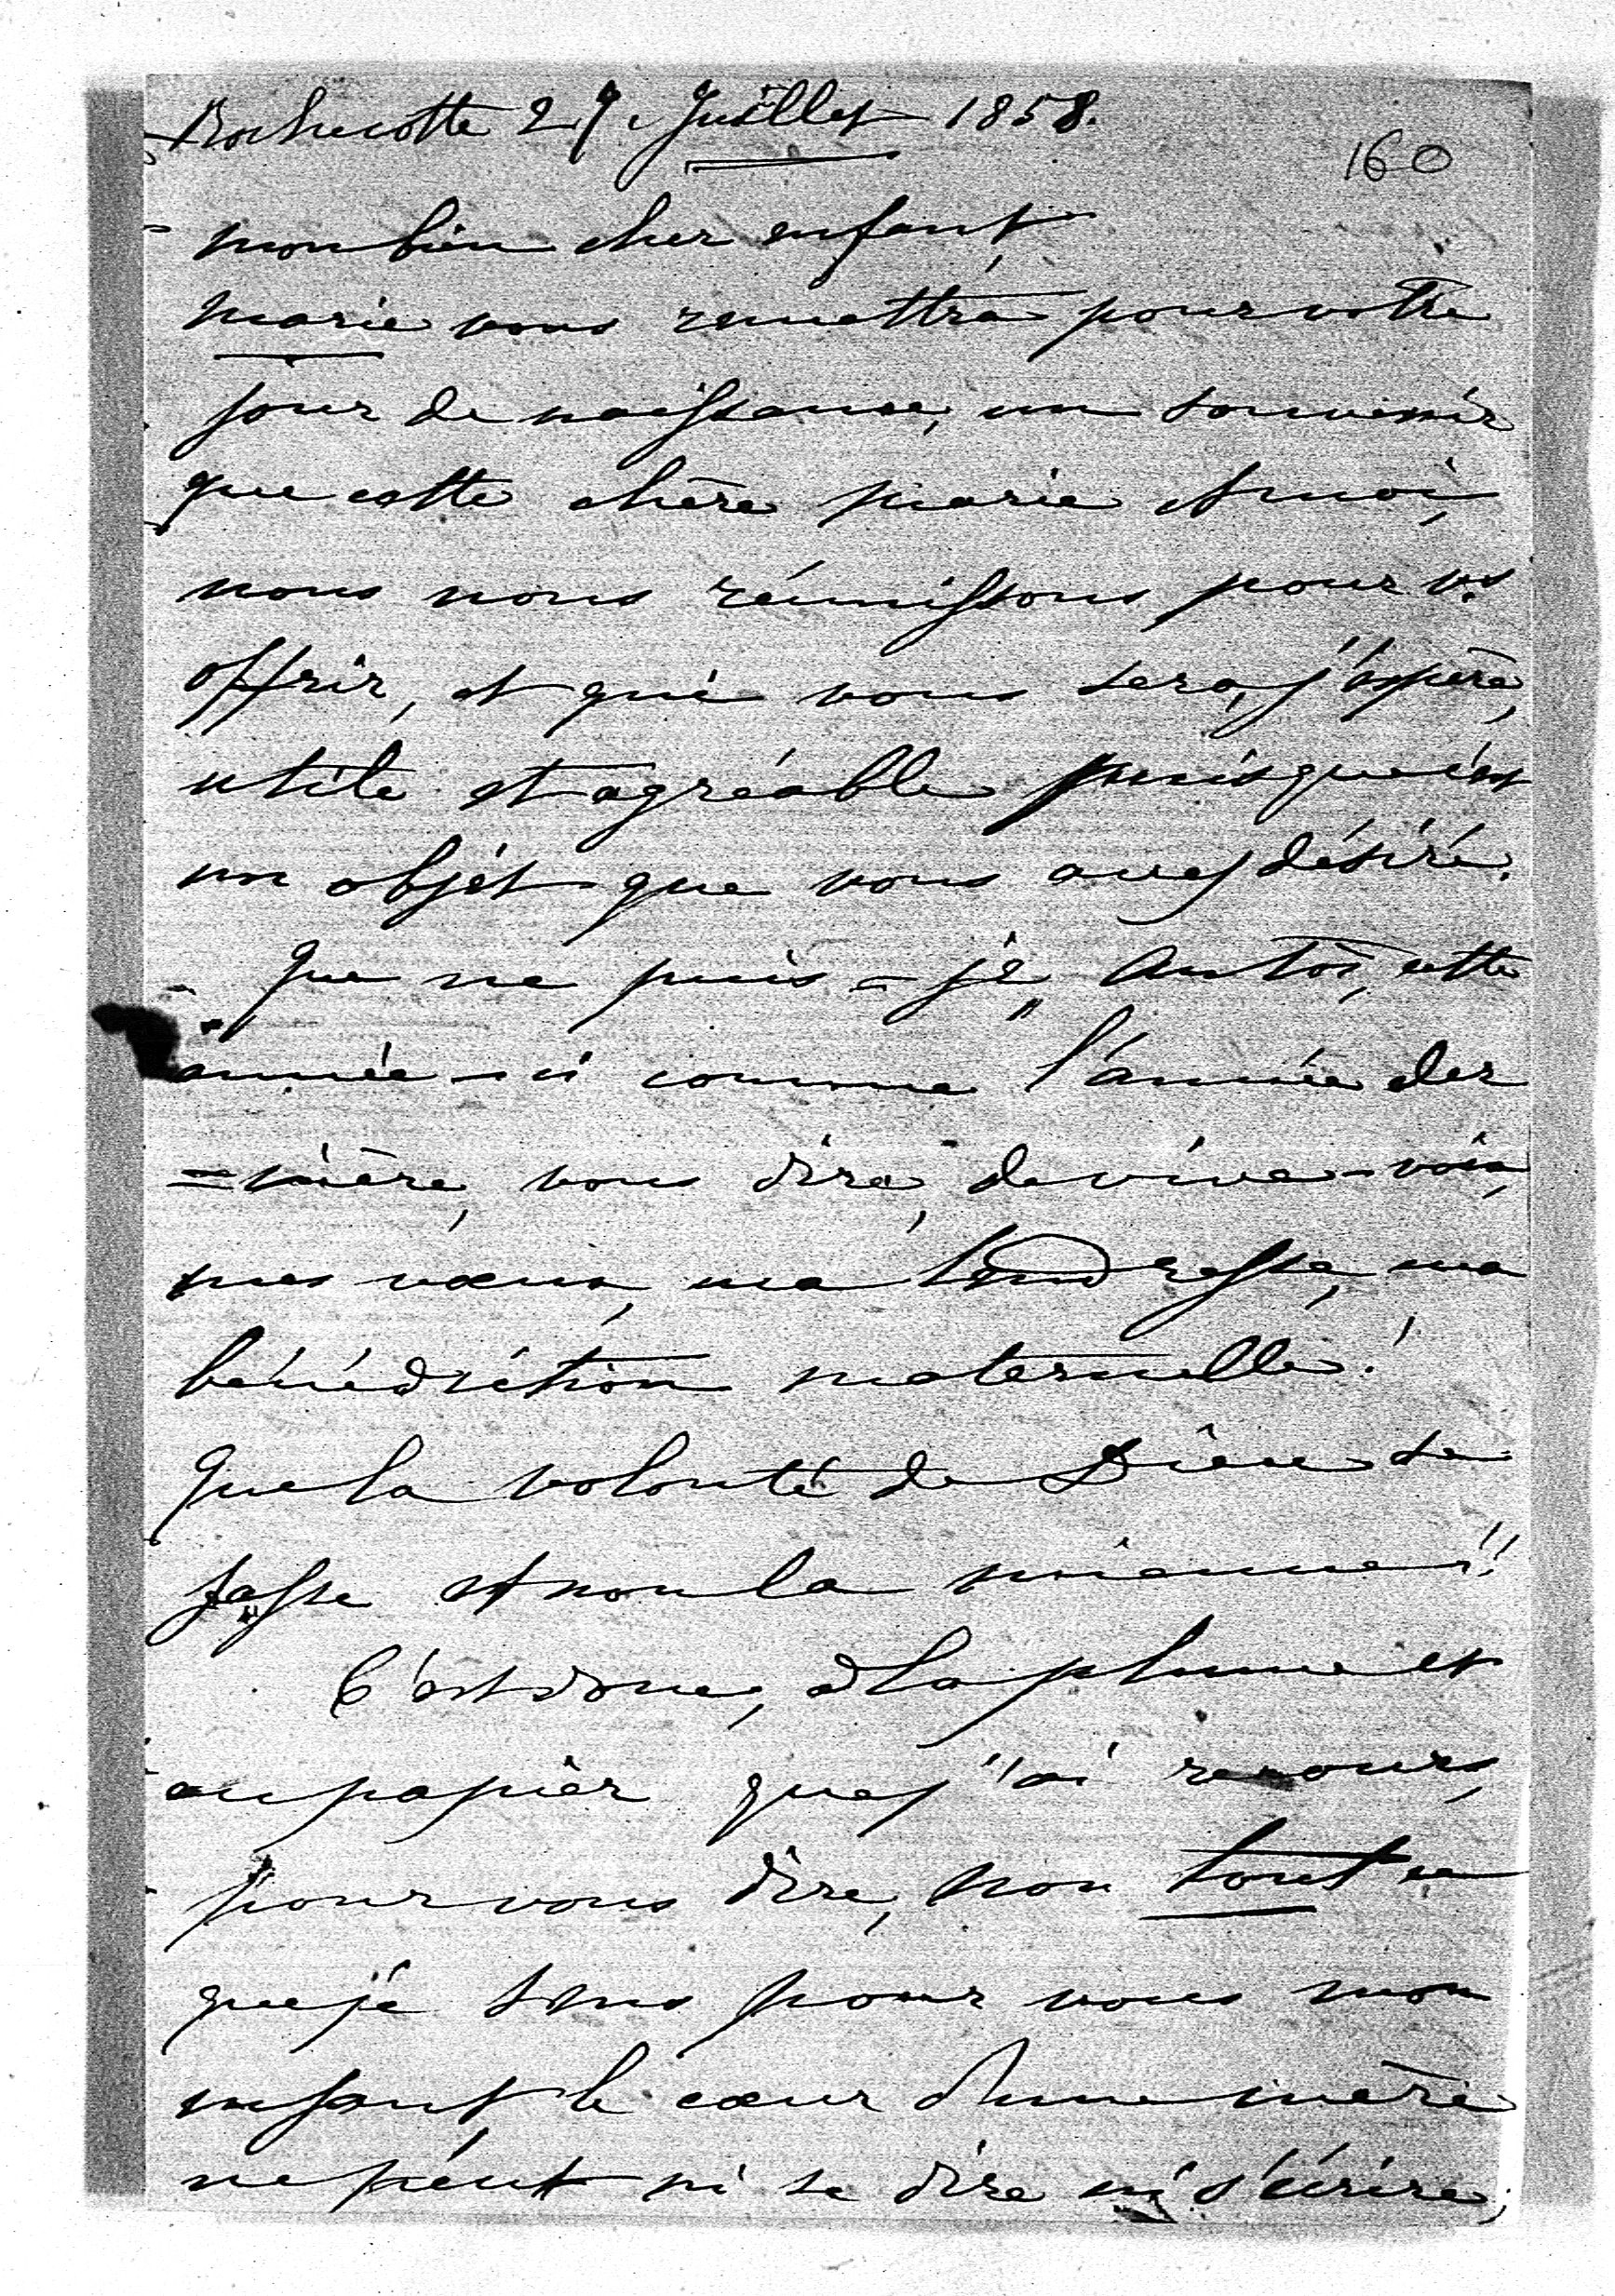 Rochecotte 29. Juillet 1858.
160
mon bien cher enfant,
marie vous remettra pour votre
jour de naissance, un souvenir
que cette chère marie et moi,
nous nous réunissons pour vs
offrir, et qui vous sera, j'éspère,
utile et agréable puisque c'est
un objèt que vous avez désiré.
Que ne puis-je, Antoi, cette
année-ci comme l'année der
=nière, vous dire, de vive-voix,
mes vœux, ma tendresse, ma
bénédiction maternelle!
Que la volonté de Dieu se
fasse et non la mienne!!
C'est donc, à la plume et
au papier que j'ai recours,
pour vous dire, non tout ce
que je sens pour vous mon
enfant, le cœur d'une mère
ne peut ni se dire ni s'écrire;